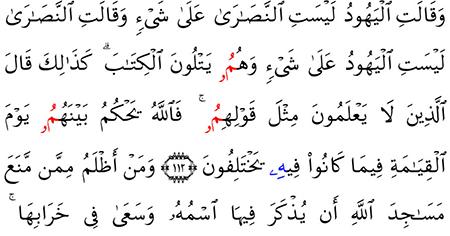 وَقَالَتِ ٱلْيَهُودُ لَيْسَتِ ٱلنَّصَـٰرَىٰ عَلَىٰ شَىْءٍۢ وَقَالَتِ ٱلنَّصَـٰرَىٰ
لَيْسَتِ ٱلْيَهُودُ عَلَىٰ شَىْءٍۢ وَهُمُۥ يَتْلُونَ ٱلْكِتَـٰبَ ۗ كَذَٰلِكَ قَالَ
ٱلَّذِينَ لَا يَعْلَمُونَ مِثْلَ قَوْلِهِمُۥ ۚ فَٱللَّهُ يَحْكُمُ بَيْنَهُمُۥ يَوْمَ
ٱلْقِيَـٰمَةِ فِيمَا كَانُوا۟ فِيهِۦ يَخْتَلِفُونَ ﴿١١٢﴾ وَمَنْ أَظْلَمُ مِمَّن مَّنَعَ
مَسَـٰجِدَ ٱللَّهِ أَن يُذْكَرَ فِيهَا ٱسْمُهُۥ وَسَعَىٰ فِى خَرَابِهَا ۚ